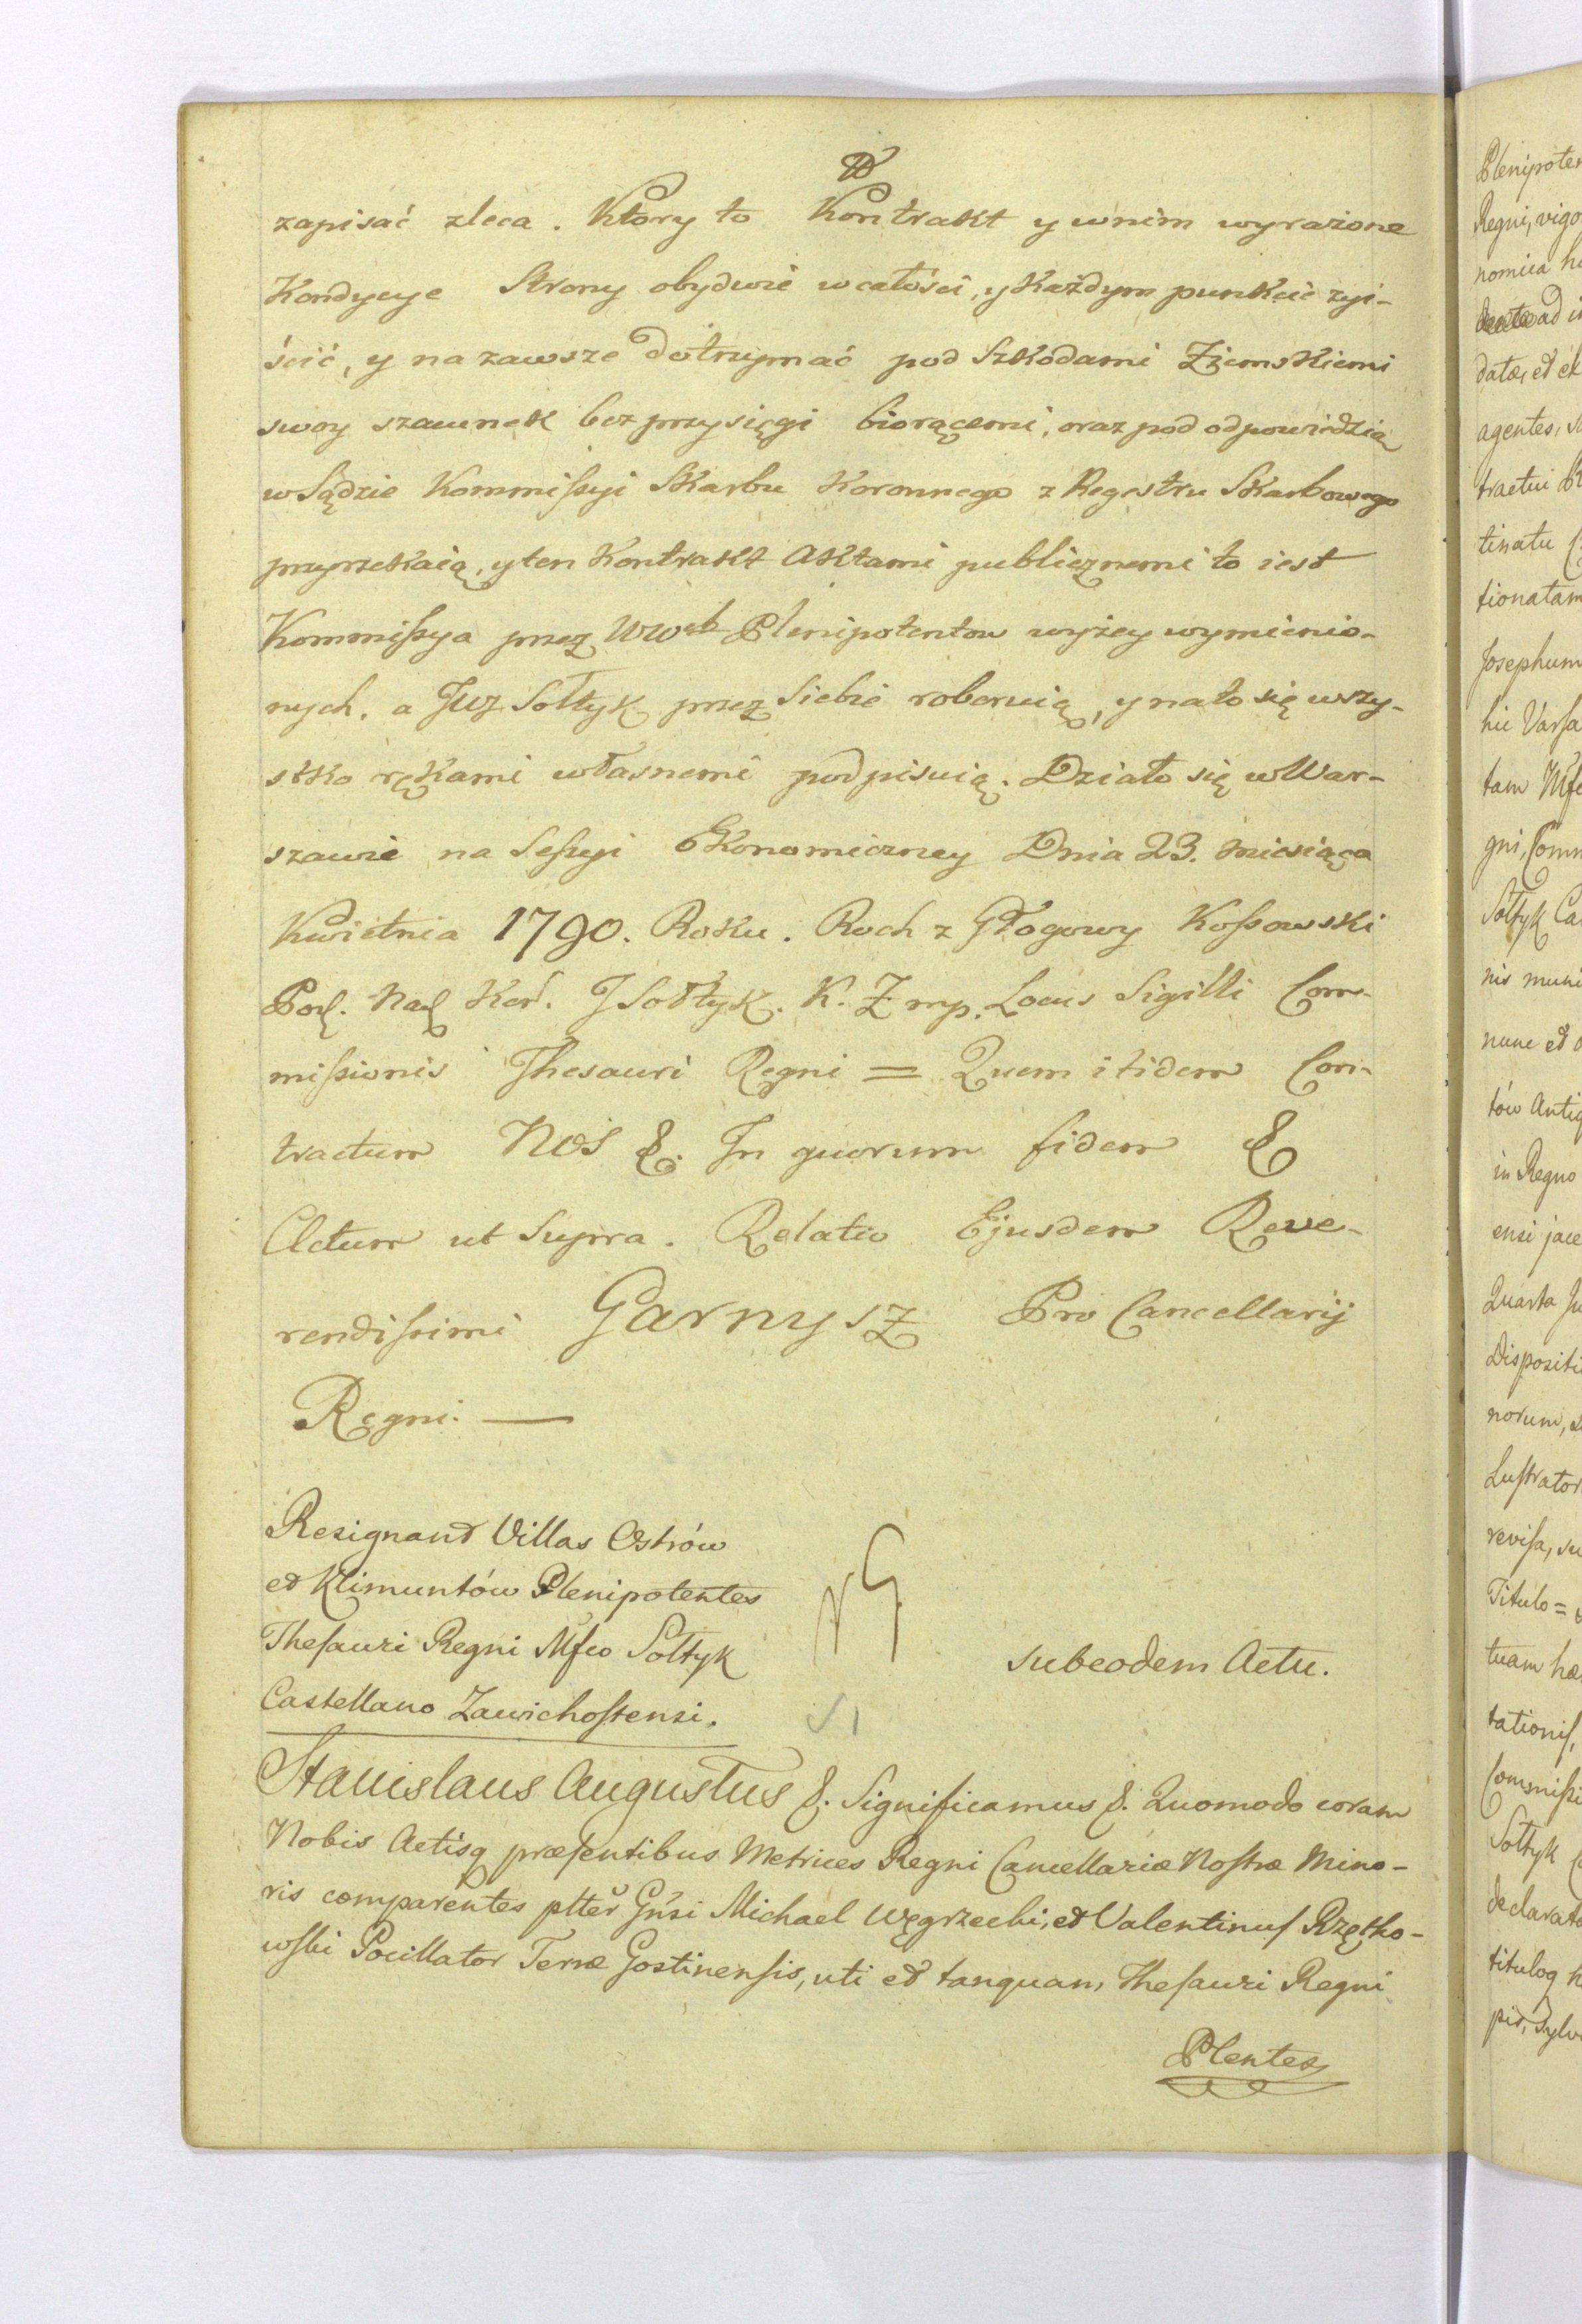 zapisać zleca. Ktory to Kontrakt y wnim wyrażone
Kondycye Strony obydwie wcałości, y Każdym punkcie zyi-
ścić, y na zawsze dotrzymać pod Szkodami Ziemskiemi
swoy szacunek bez przysięgi biorącemi, oraz pod odpowiedzią
w Sądzie Kommissyi Skarbu Koronnego z Regestru Skarbowego
przyrzekaią, y ten Kontrakt Aktami publicznemi to iest
Kommissya przez WWch Plenipotentow wyżey wymienio-
nych, a JWJ Sołtyk przez Siebie roboruią, y nato się wszy-
stko rękami własnemi podpisuią. Działo się w War-
szawie na Sessyi Ekonomiczney Dnia 23. Miesiąca
Kwietnia 1790. Roku. Roch z Głogowy Kossowski
Pod. Nad Kor. J Sołtyk. K. Z mp. Locus Sigilli Com-
missionis Thesauri Regni = Quem itidem Con-
tractum NOS &. In quorum fidem &
Actum ut Supra. Relatio Ejusdem Reve-
rendissimi Garnysz Pro Cancellarij
Regni. —
Resignant Villas Ostrów
et Klimuntów Plenipotentes
Thesauri Regni Mfco Sołtyk
Castellano Zawichostensi.
subeodem Actu.
Stanislaus Augustus &. Significamus &. Quomodo coram
Nobis Actisq præsentibus Metrices Regni Cancellariæ Nostræ Mino-
ris comparentes ptter Gnsi Michael Węgrzecki, et Valentinus Rzętko-
wski Pocillator Terræ Gostinensis, uti et tanquam Thesauri Regni
Plentes
Plenipoten
Regni, vigo
nomica h
ad i
datæ, et ex
agentes, s
tractui
tinatu
tionatam
Josephum
hic Varsa
tam Mfc
gni, Comm
Sołtyk Ca
nis muni
nunc et
tów Antiq
in Regno
ensi jace
Quarta Ju
Dispositi
norum,
Lustrator
revisa, su
Titulo =
tuam hæ
tationis,
Commissi
Sołtyk
declarato
tituloq h
pis, Sylv